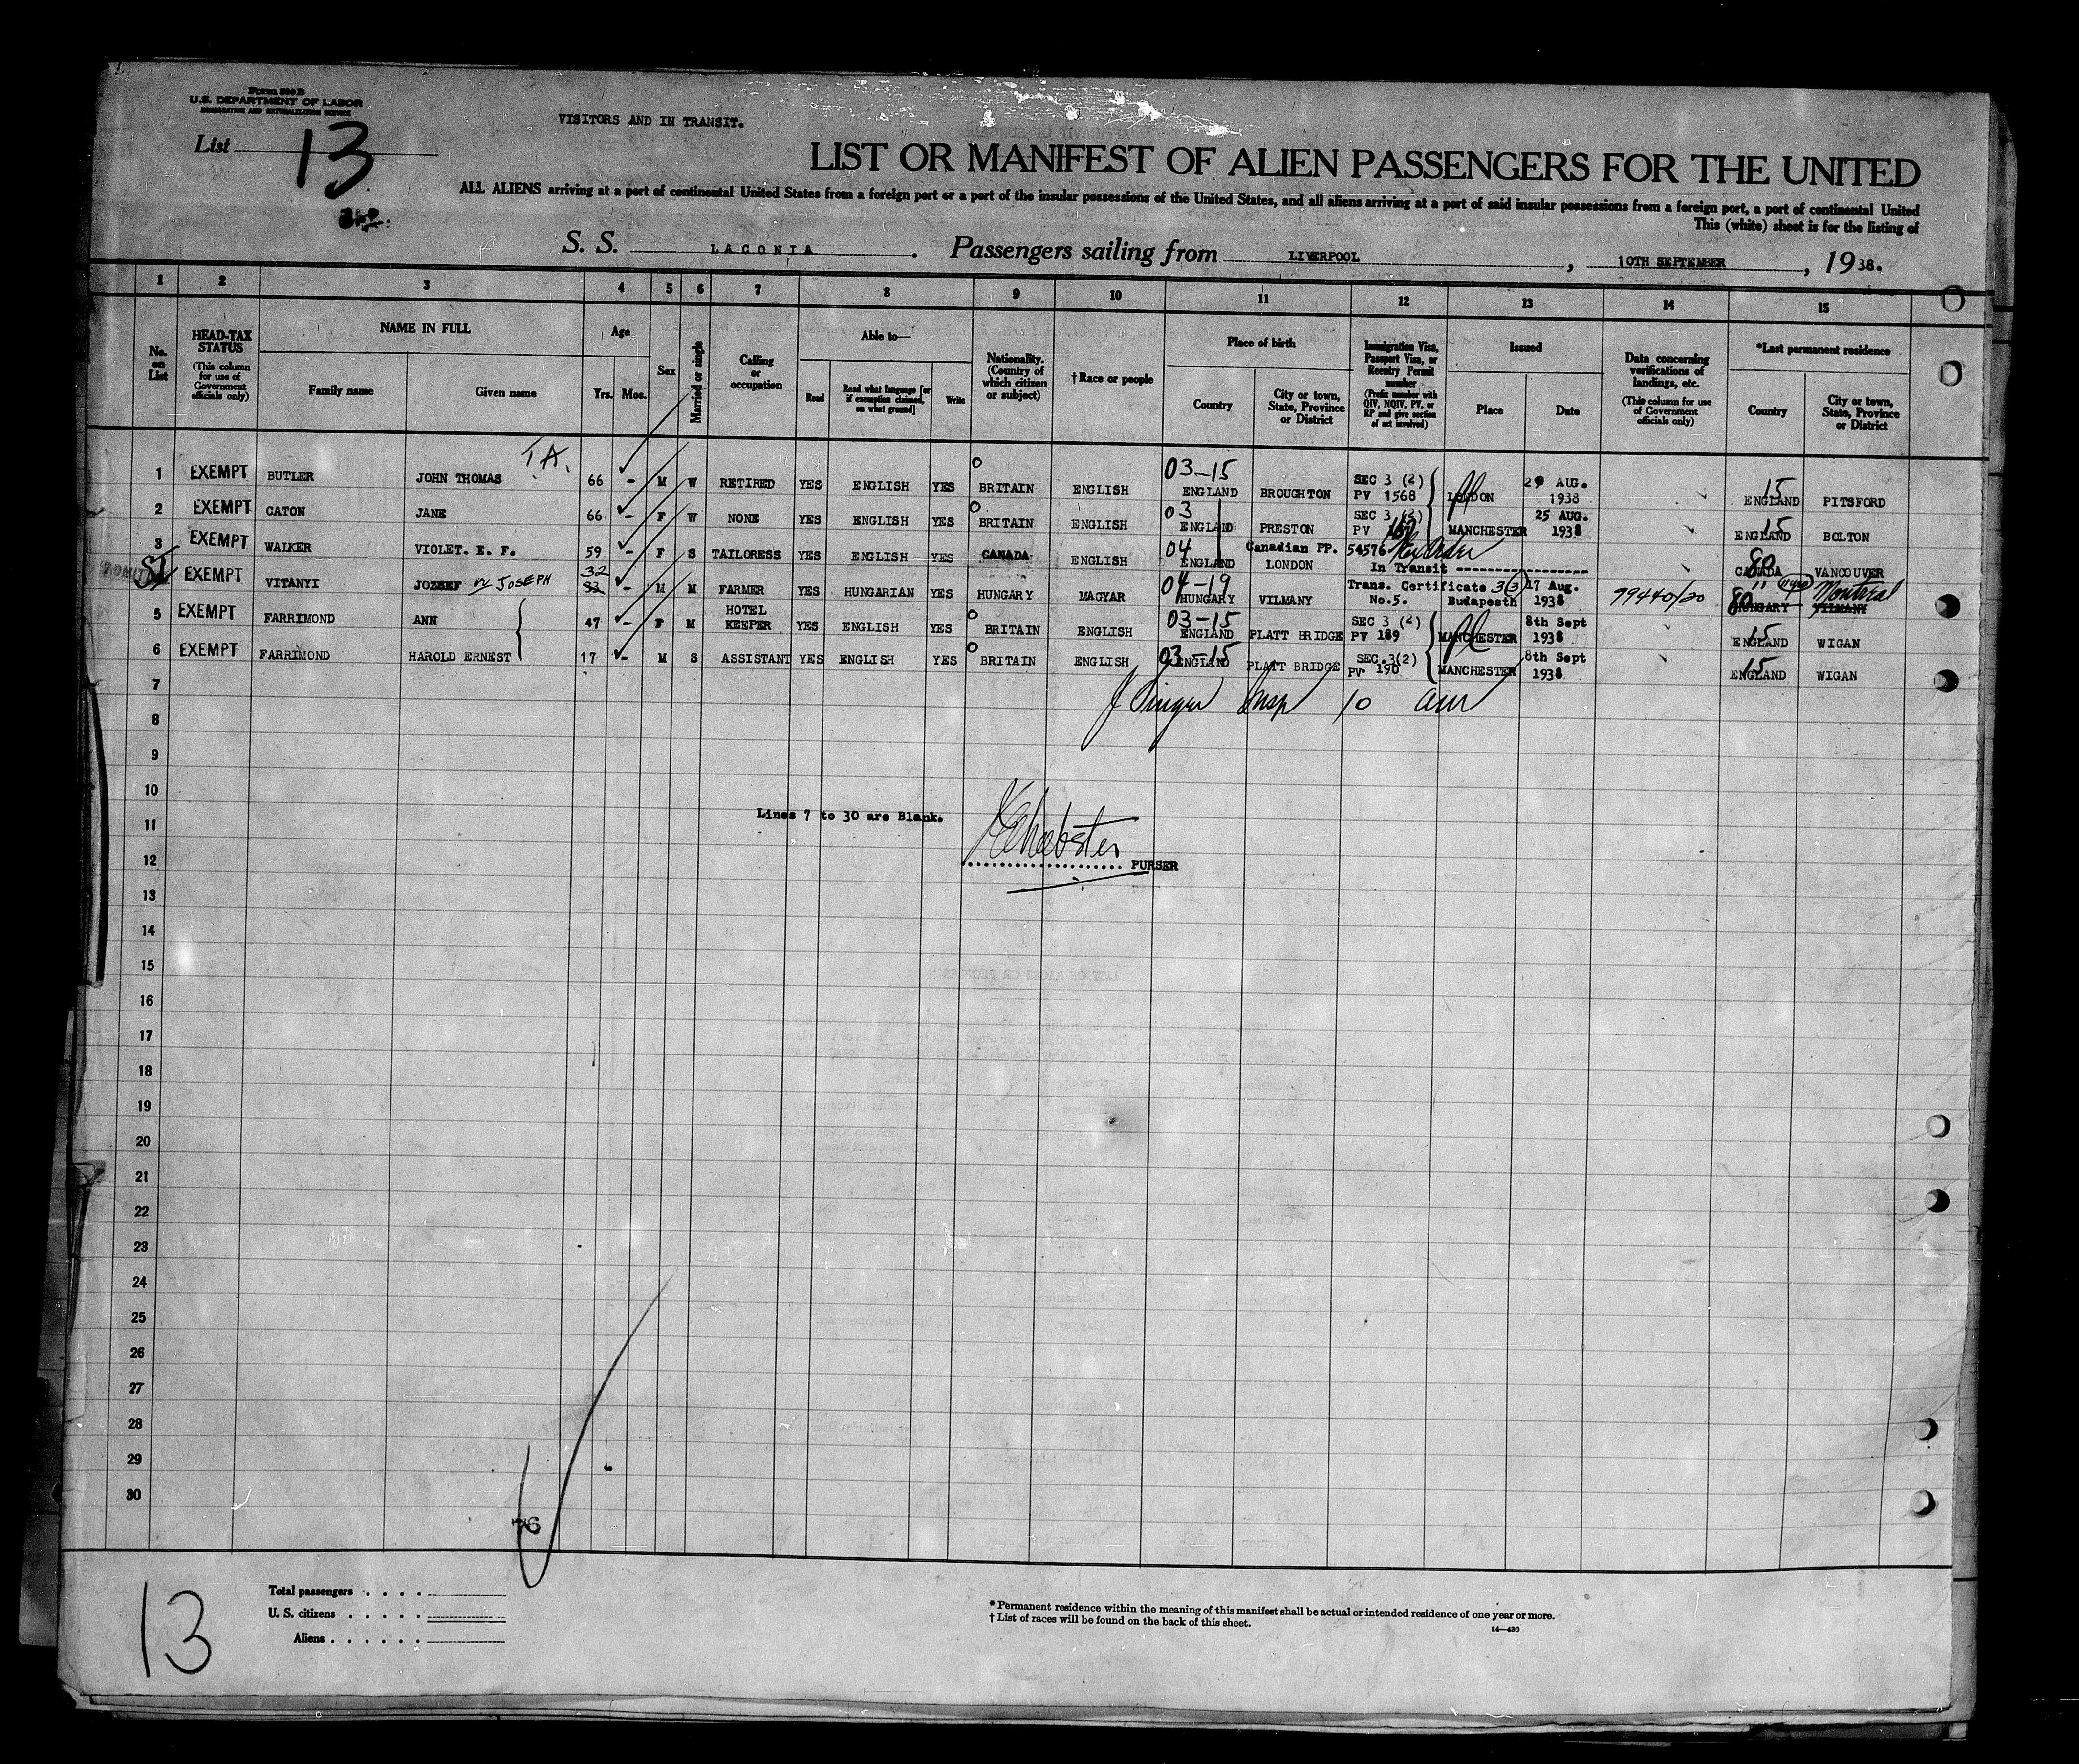 Form 500 B
U.S. DEPARTMENT OF LABOR
IMMIGRATION AND NATURALIZATION SERVICE
List 13
VISITORS AND IN TRANSIT.
LIST OR MANIFEST OF ALIEN PASSENGERS FOR THE UNITED
ALL ALIENS arriving at a port of continental United States from a foreign port or a port of the insular possessions of the United States, and all aliens arriving at a port of said insular possessions from a foreign port, a port of continental United
This (white) sheet is for the listing of
S. S. LACONIA. Passengers sailing from LIVERPOOL, 10TH SEPTEMBER, 1938.
1 2 3 4 5 6 7 8 9 10 11 12 13 14 15
No. on List
HEAD-TAX STATUS (This column for use of Government officials only)
NAME IN FULL
Family name
Given name
Age
Yrs. Mos.
Sex
Married or single
Calling or occupation
Able to—
Read
Read what language [or if exemption claimed, on what ground]
Write
Nationality. (Country of which citizen or subject)
†Race or people
Place of birth
Country
City or town, State, Province or District
Immigration Visa, Passport Visa, or Reentry Permit number (Prefix number with QIV, NQIV, PV, or RP and give section of act involved)
Issued
Place
Date
Data concerning verifications of landings, etc. (This column for use of Government officials only)
*Last permanent residence
Country
City or town, State, Province or District
T.A.
1 EXEMPT BUTLER JOHN THOMAS 66 - M W RETIRED YES ENGLISH YES BRITAIN ENGLISH 03-15 ENGLAND BROUGHTON SEC 3 (2) PV 1568 LONDON 29 AUG. 1938 15 ENGLAND PITSFORD
2 EXEMPT CATON JANE 66 - F W NONE YES ENGLISH YES BRITAIN ENGLISH 03 ENGLAND PRESTON SEC 3 (2) PV MANCHESTER 25 AUG. 1938 15 ENGLAND BOLTON
3 EXEMPT WALKER VIOLET. E. F. 59 - F S TAILORESS YES ENGLISH YES CANADA ENGLISH 04 ENGLAND LONDON Canadian PP. 54576 In Transit 80 CANADA VANCOUVER
SI EXEMPT VITANYI JOZSEF or JOSEPH 32 33 - M M FARMER YES HUNGARIAN YES HUNGARY MAGYAR 04-19 HUNGARY VILMANY Trans. Certificate 3(3) No.5. Budapesth 17 Aug. 1938 99440/20 80 " HUNGARY Montreal VILMANY
5 EXEMPT FARRIMOND ANN 47 - F M HOTEL KEEPER YES ENGLISH YES BRITAIN ENGLISH 03-15 ENGLAND PLATT BRIDGE SEC 3 (2) PV 189 MANCHESTER 8th Sept 1938 15 ENGLAND WIGAN
6 EXEMPT FARRIMOND HAROLD ERNEST 17 - M S ASSISTANT YES ENGLISH YES BRITAIN ENGLISH 03-15 ENGLAND PLATT BRIDGE SEC.3(2) PV 190 MANCHESTER 8th Sept 1938 15 ENGLAND WIGAN
7
J Singer Insp 10 am
8
9
10
Lines 7 to 30 are Blank.
11
12
PURSER
13
14
15
16
17
18
19
20
21
22
23
24
25
26
27
28
29
30
76
13
Total passengers
U. S. citizens
Aliens
* Permanent residence within the meaning of this manifest shall be actual or intended residence of one year or more.
† List of races will be found on the back of this sheet.
14—430